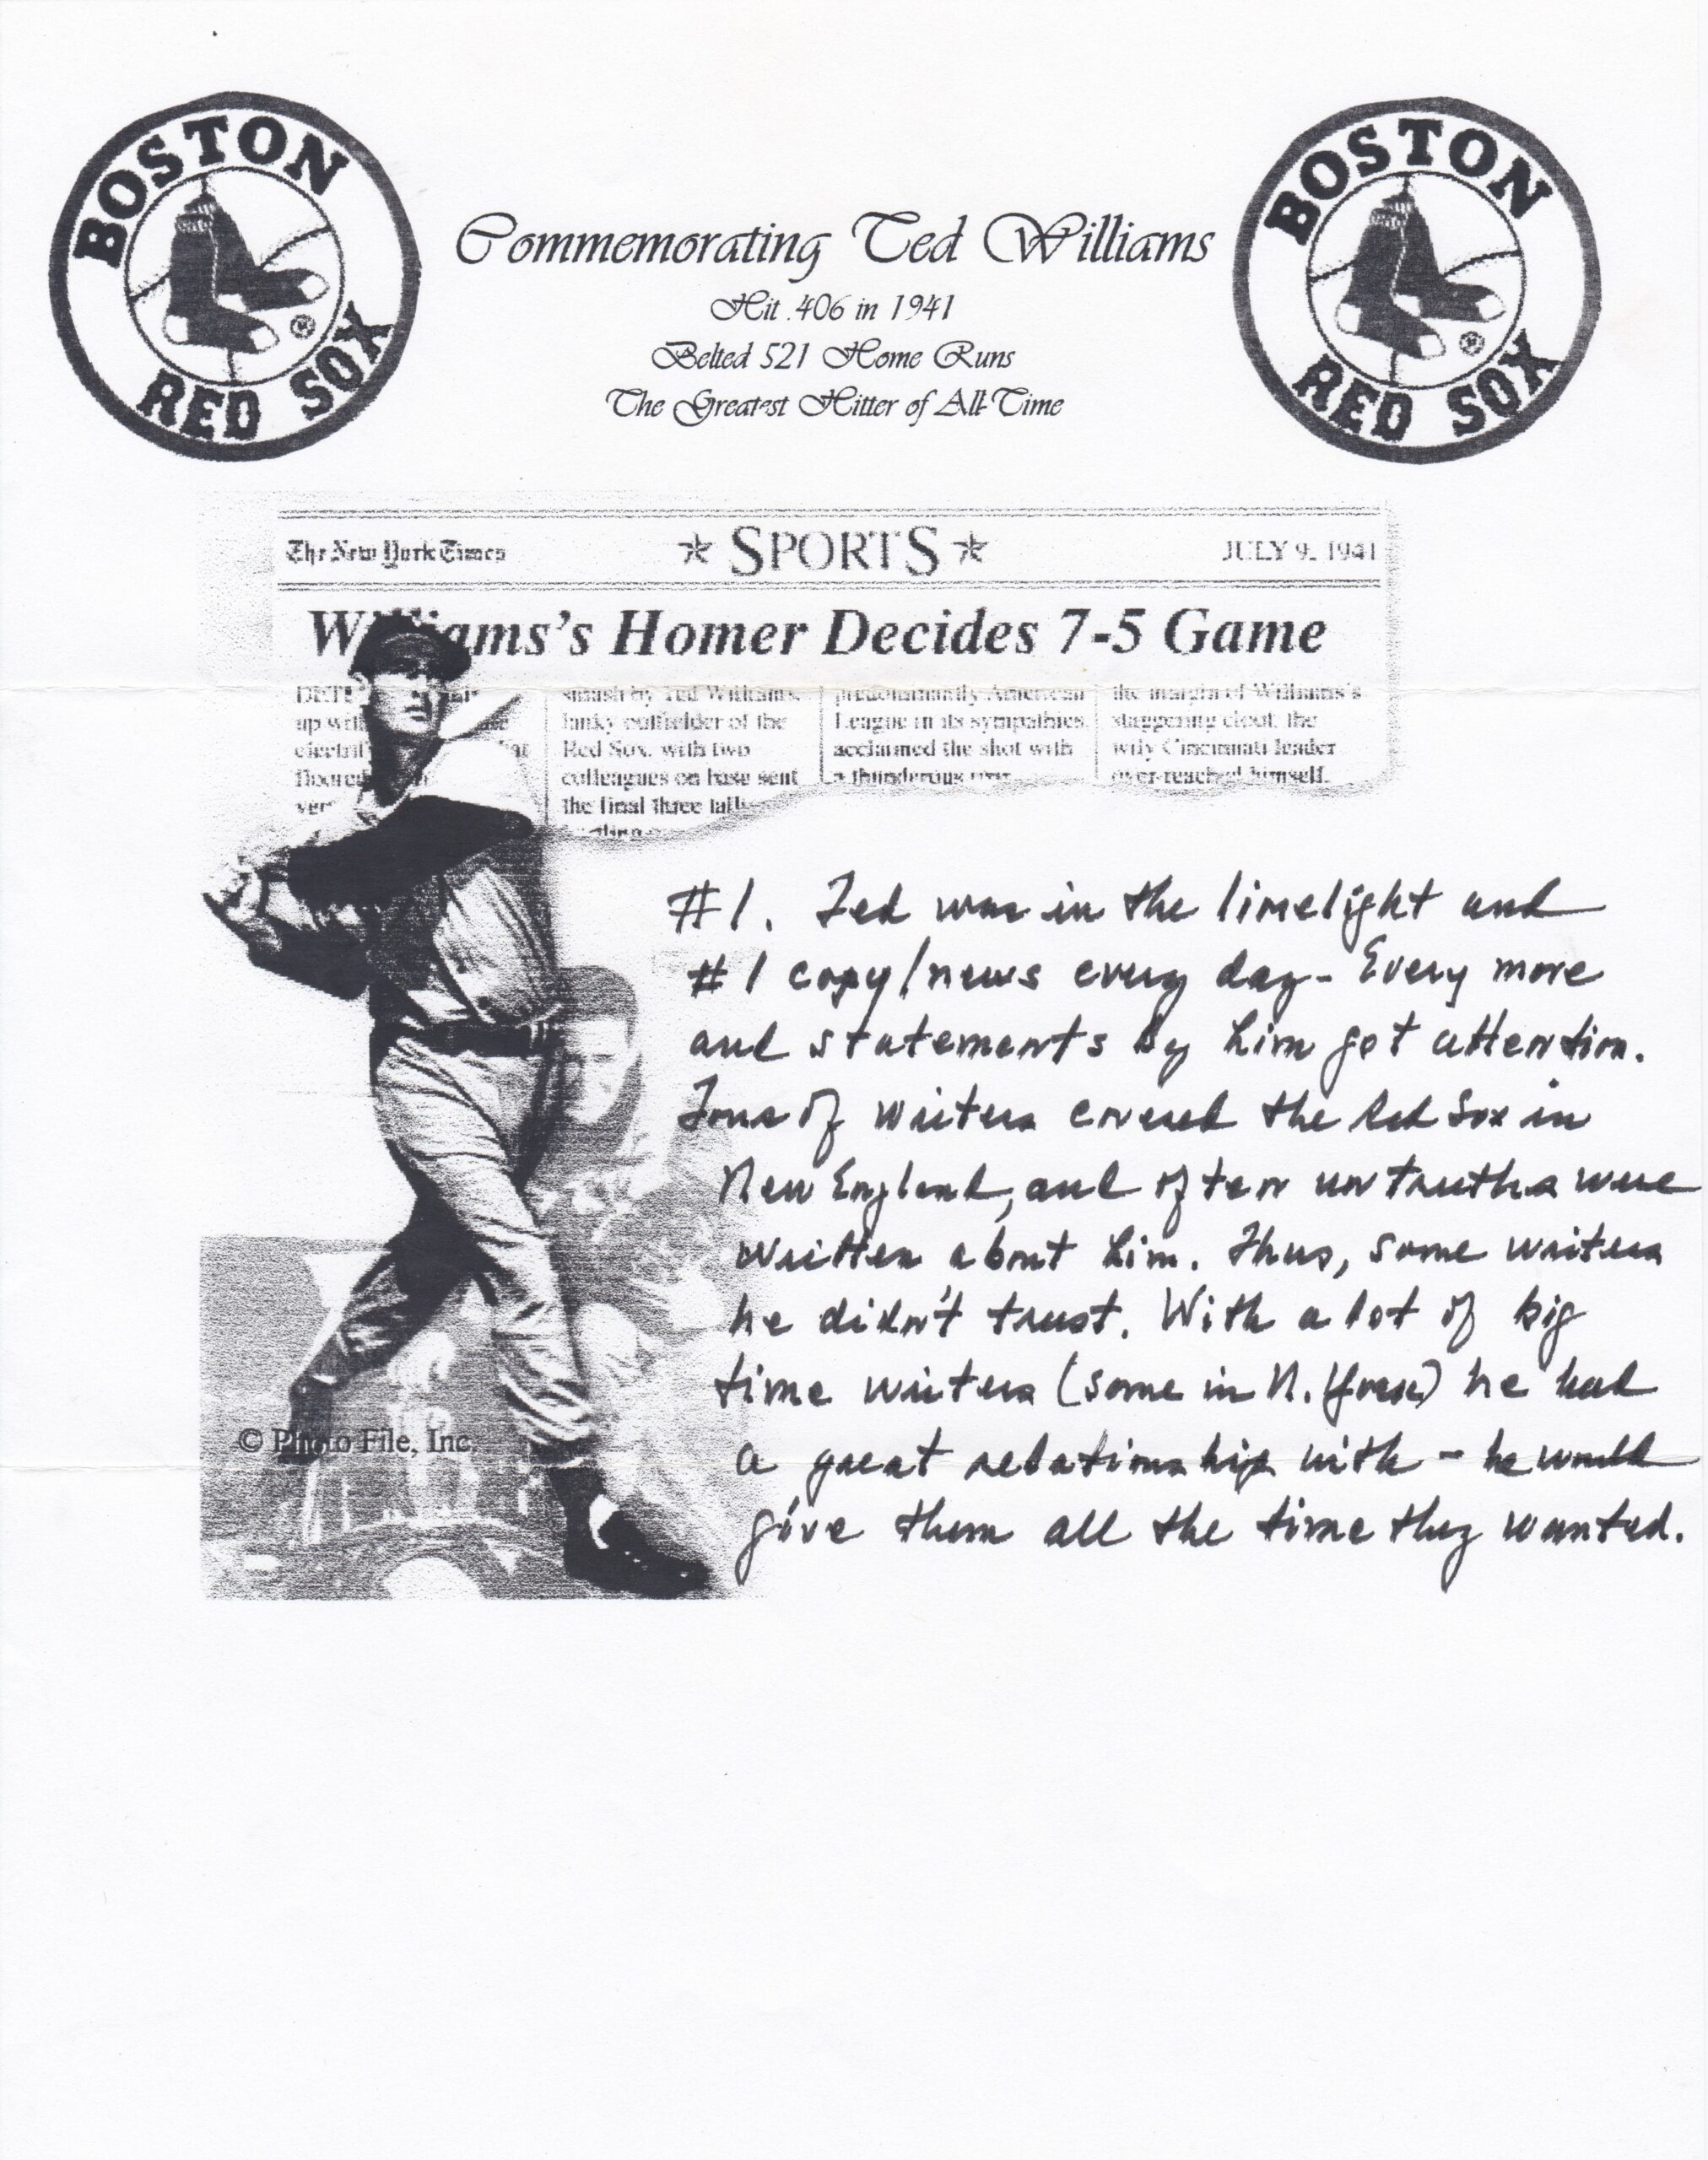 BOSTON RED SOX
BOSTON RED SOX
Commemorating Ted Williams
Hit .406 in 1941
Belted 521 Home Runs
The Greatest Hitter of All-Time
The New York Times
SPORTS
JULY 9, 1941
Williams's Homer Decides 7-5 Game
up
smash by Ted Williams,
lanky outfielder of the
Red Sox, with two
colleagues on base sent
the final three
predominantly American
League in its sympathies,
acclaimed the shot with
a thunderous
the margin of Williams's
staggering clout, the
wily Cincinnati leader
over-reached himself.
#1. Ted was in the limelight and
#1 copy/news every day- Every more
and statements by him got attention.
Tons of writers covered the Red Sox in
New England, and often untruths were
written about him. Thus, some writers
he didn't trust. With a lot of big
time writers (some in N. York) he had
a great relationship with - he would
give them all the time they wanted.
© Photo File, Inc.